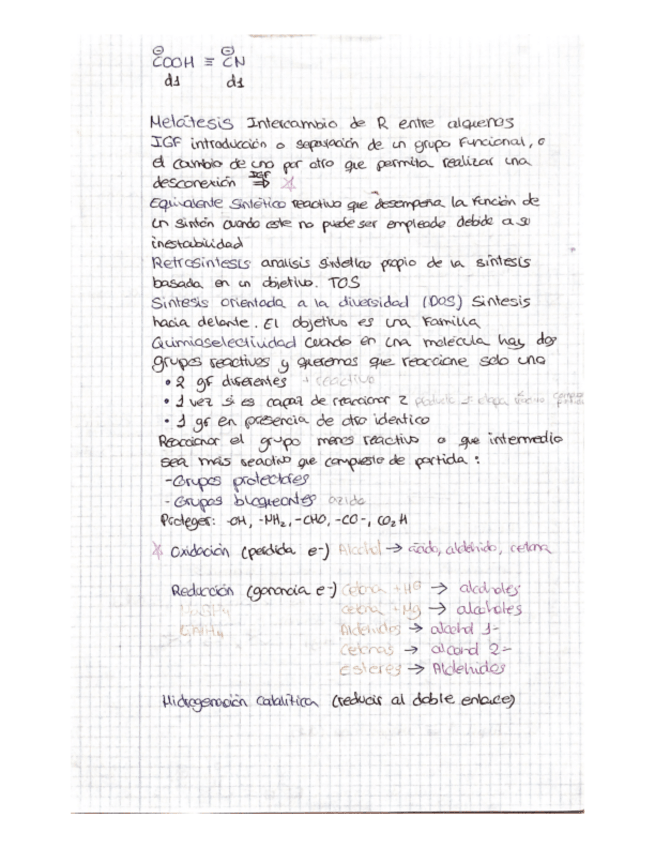 ⊖COOH ≡ ⊖CN
d1 d1
Metátesis Intercambio de R entre alquenos
IGF introducción o separación de un grupo funcional, o
el cambio de uno por otro que permita realizar una
desconexión IGF ⇒
Equivalente sintético reactivo que desempeña la función de
un sintón cuando este no puede ser empleado debido a su
inestabilidad
Retrosíntesis analisis sintetico propio de la síntesis
basada en un objetivo. TOS
Síntesis orientada a la diversidad (DOS) Sintesis
hacia delante. El objetivo es una familia
Quimioselectividad cuando en una molécula hay dos
grupos reactivos y queremos que reaccione solo uno
• 2 gf diferentes + reactivo
• 1 vez si es capaz de reaccionar 2 producto
• 1 gf en presencia de otro identico
Reaccionar el grupo menos reactivo o que intermedio
sea más reactivo que compuesto de partida:
-Grupos protectores
-Grupos bloqueantes
Proteger: -OH, -NH₂, -CHO, -CO-, CO₂H
Oxidación (perdida e-) Alcohol → ácido, aldehido, cetona
Reducción (ganancia e-) cetona → alcoholes
NaBH4 cetona + Mg → alcoholes
LiAlH4 Aldehidos → alcohol 1-
cetonas → alcohol 2-
esteres → Aldehidos
Hidrogenación Catalítica (reducir al doble enlace)